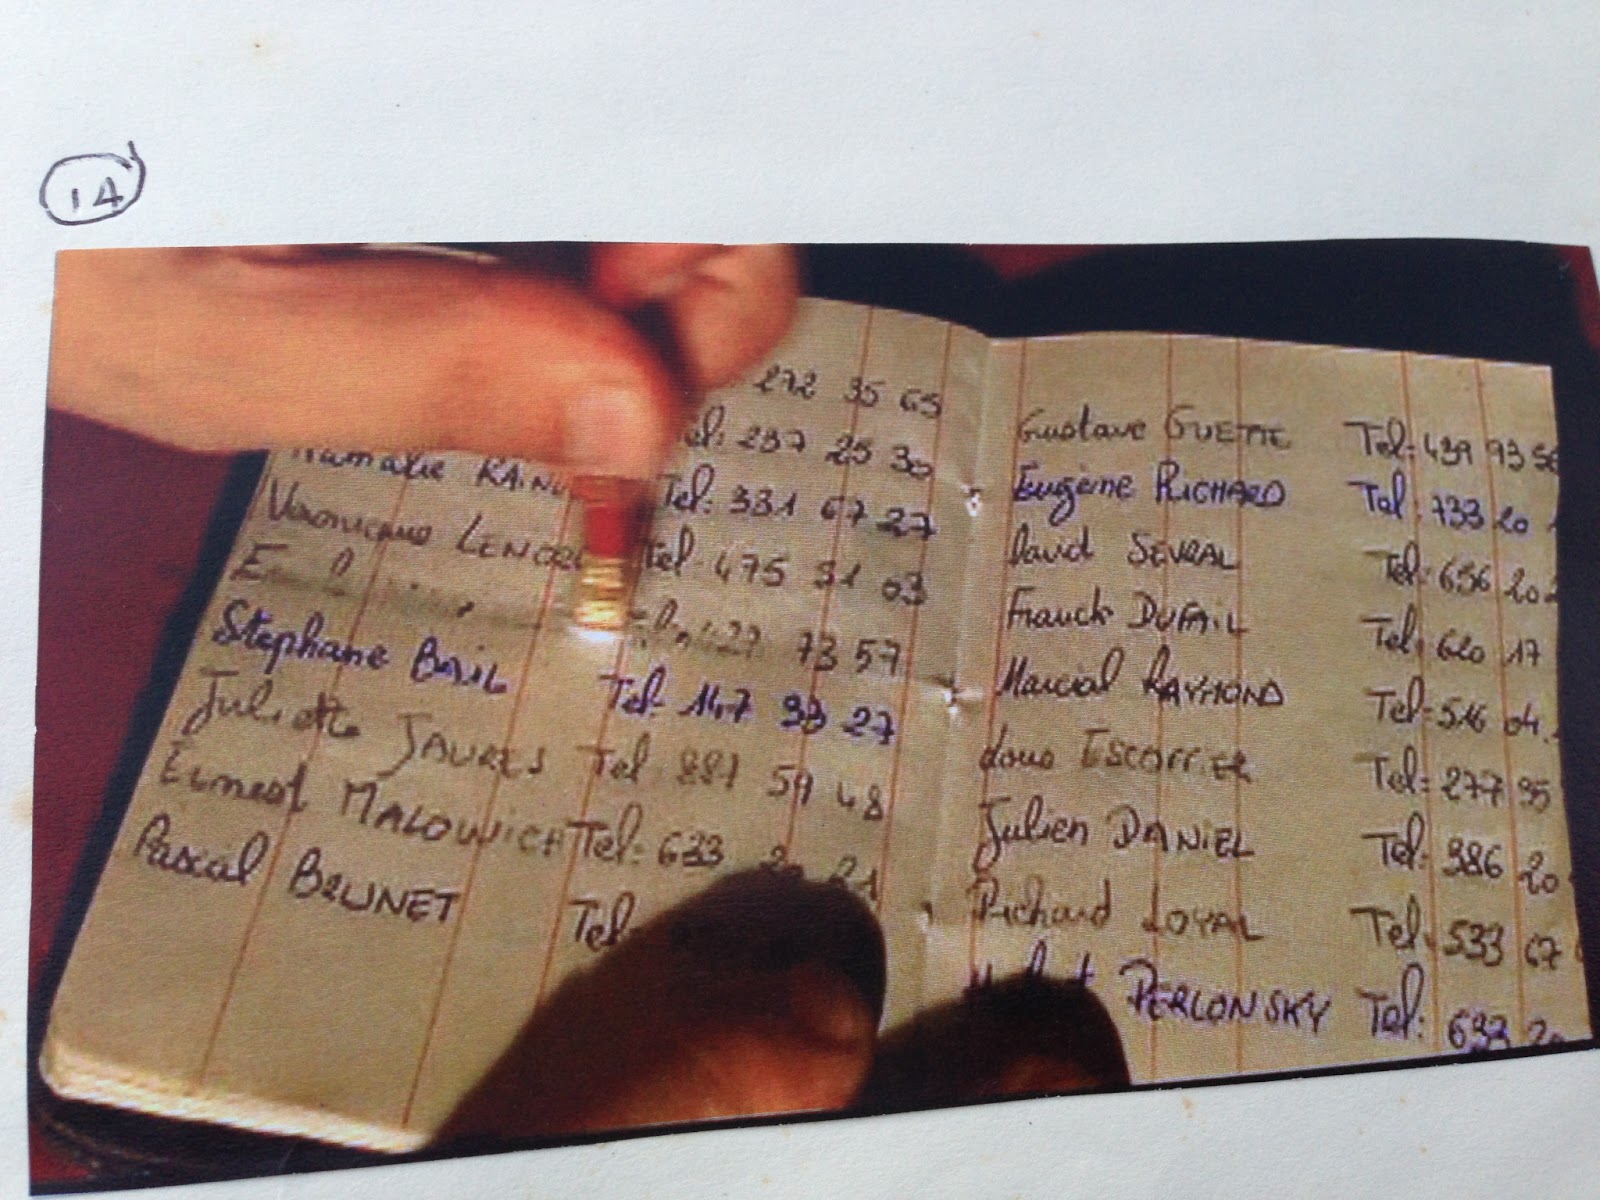 14
272 35 65
Tel: 237 25 30
Tel: 331 67 27
Veronique Tel 475 31 03
73 57
Stephane BAIL Tel: 147 33 27
Juliette JAURES Tel 881 59 48
Ernest MALOWICH Tel: 633 20 21
Pascal BRUNET Tel:
Gustave GUETTE Tel: 439 93 56
Eugène RICHARD Tel: 733 20
David SEVRAL Tel: 656 20
Franck DUFAIL Tel: 620 17
Marcial RAYMOND Tel: 516 04
ESCOFFIER Tel: 277 35
Julien DANIEL Tel: 386 20
Richard LOYAL Tel: 533 67
PERLONSKY Tel: 633 20